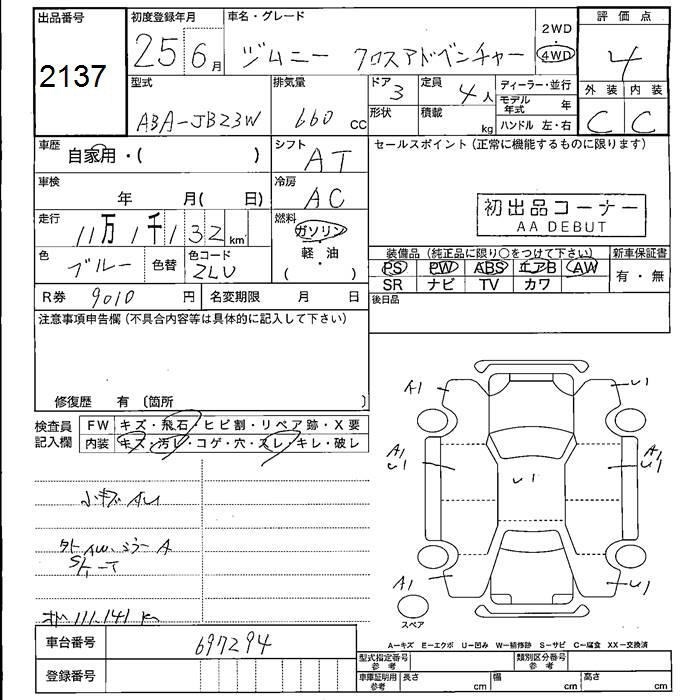 出品番号
2137
初度登録年月
25 6月
車名・グレード
ジムニー クロスアドベンチャー
2WD
・
4WD
評価点
4
外装 内装
C C
型式
ABA-JB23W
排気量
660 CC
ドア
3
形状
定員
4人
積載
kg
ディーラー・並行
モデル年式 年
ハンドル 左・右
車歴
自家用・( )
シフト
AT
セールスポイント(正常に機能するものに限ります)
車検
年 月( 日)
冷房
AC
初出品コーナー
AA DEBUT
走行
11万1千132km
燃料
ガソリン
・
軽・油
( )
色
ブルー
色替
色コード
ZLU
装備品(純正品に限り○をつけて下さい)
PS PW ABS エアB AW
SR ナビ TV カワ
新車保証書
有・無
R券 9010 円
名変期限 月 日
後日品
注意事項申告欄(不具合内容等は具体的に記入して下さい)
修復歴 有〔箇所 〕
検査員
記入欄
FW キズ・飛石・ヒビ割・リペア跡・X要
内装 キズ・汚レ・コゲ・穴・スレ・キレ・破レ
A1
U1
A1
U1
A1
U1
U1
A1
U1
小キズ AU
スペア
A-キズ E-エクボ U-凹み W-補修跡 S-サビ C-腐食 XX-交換済
車台番号 697294
登録番号
型式指定番号
参考
類別区分番号
参考
車庫証明用
参考
長さ cm
幅 cm
高さ cm